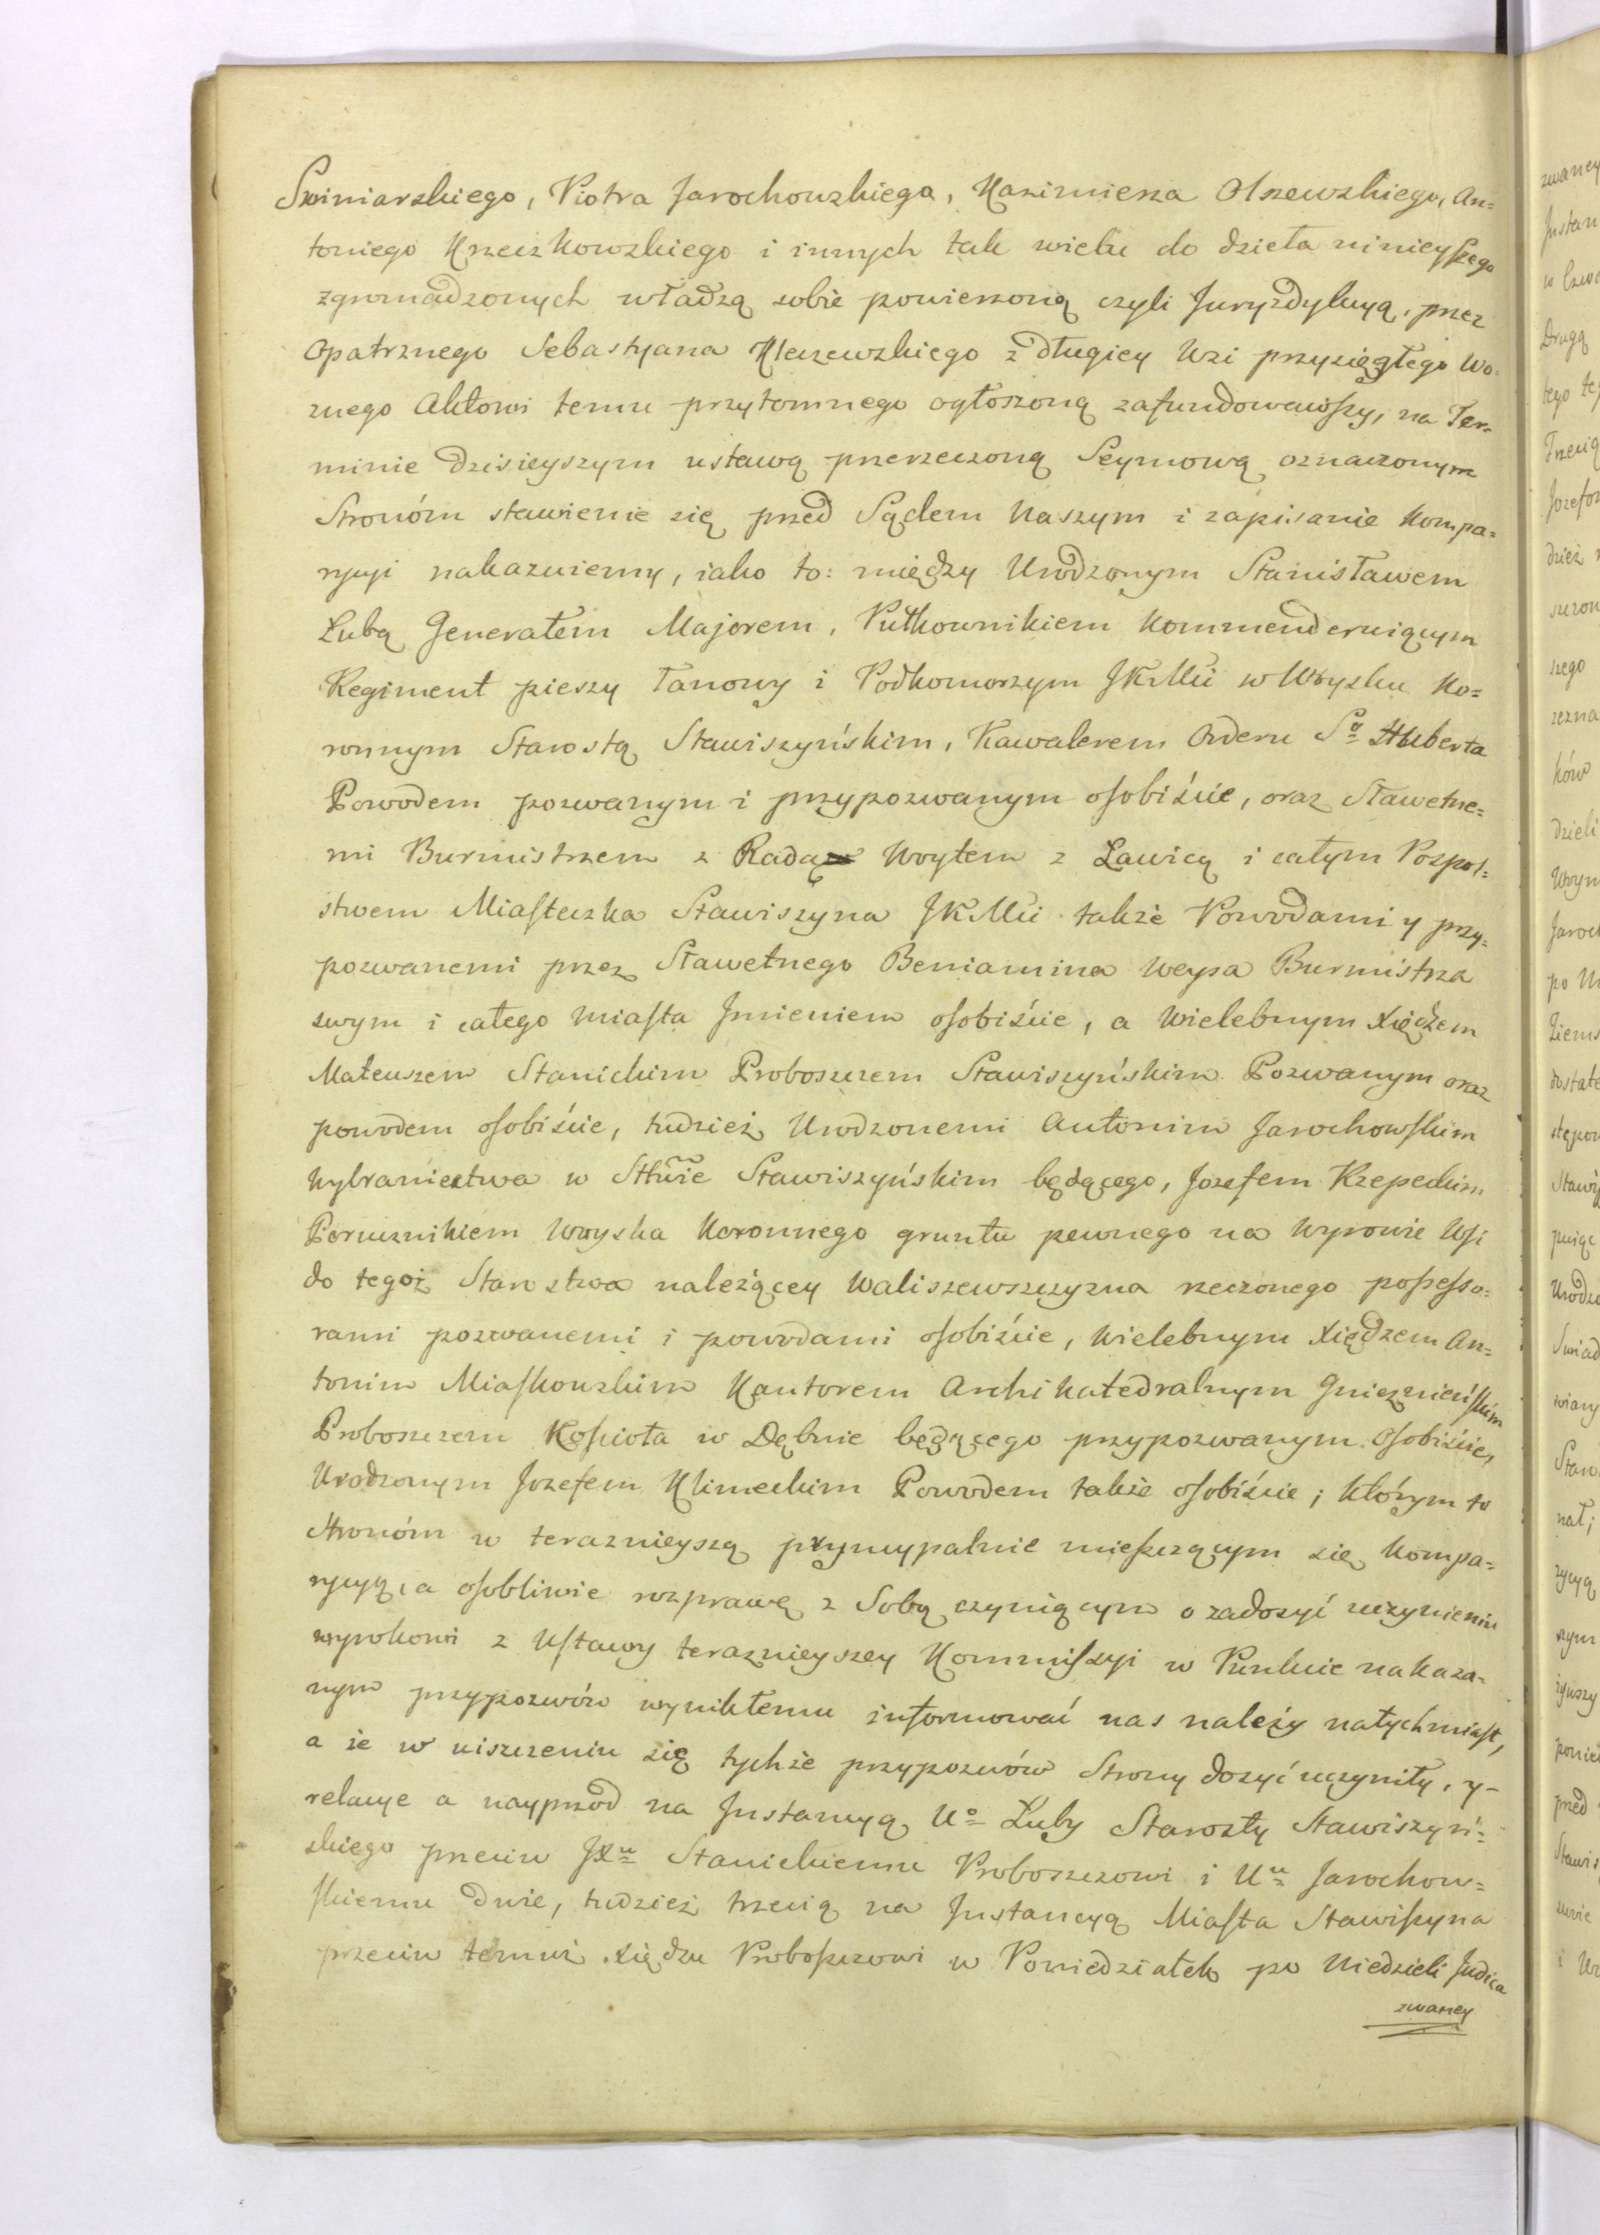 Swiniarskiego, Piotra Jarochowskiego, Kazimierza Olszewskiego, An=
toniego Krzeczkowskiego i innych tak wielu do dzieła ninieyszego
zgromadzonych władzą sobie powierzoną czyli Juryzdykcyą, przez
Opatrznego Sebastyana Kleczewskiego z długiey Wsi przysięgłego Wo=
znego Aktowi temu przytomnego ogłoszoną zafundowawszy, na Ter=
minie dzisieyszym ustawą przerzeczoną Seymową oznaczonym
Stronóm stawienie się przed Sądem Naszym i zapisanie Kompa=
rycyi nakazuiemy, iako to: między Urodzonym Stanisławem
Lubą Generałem Majorem, Pułkownikiem Kommenderuiącym
Regiment pieszy Łanowy i Podkomorzym JKMci w Woysku Ko=
ronnym Starostą Stawiszyńskim, Kawalerem Orderu Sgo Huberta
Powodem pozwanym i przypozwanym osobiście, oraz Sławetne=
mi Burmistrzem z Radą Woytem z Ławicą i całym Pospol=
stwem Miasteczka Stawiszyna JKMci także Powodami y przy=
pozwanemi przez Sławetnego Beniamina Weysa Burmistrza
swym i całego miasta Jmieniem osobiście, a Wielebnym Xiędzem
Mateuszem Stanickim Proboszczem Stawiszyńskim Pozwanym oraz
powodem osobiście, tudzież Urodzonemi Antonim Jarochowskim
Wybraniectwa w Sttwie Stawiszyńskim będącego, Jozefem Rzepeckim
Porucznikiem Woyska Koronnego gruntu pewnego na Wyrowie Wsi
do tegoż Starostwa należącey Waliszewszczyzna rzeczonego possesso=
rami pozwanemi i powodami osobiście, Wielebnym Xiędzem An=
tonim Miaskowskim Kantorem Archikatedralnym Gnieznieńskim
Proboszczem Kościoła w Dębnie będącego przypozwanym osobiście,
Urodzonym Jozefem Klimeckim Powodem także osobiście; którym to
Stronóm w teraznieyszą pryncypalnie mieszczącym się Kompa=
rycyą, a osobliwie rozprawę z Sobą czyniącym o zadosyć uczynieniu
wyrokowi z Ustawy teraznieyszey Kommissyi w Punkcie nakaza=
nym przypozwów wynikłemu informować nas należy natychmiast,
a że w uiszczeniu się tychże przypozwów Strony dosyć uczyniły, y=
relacye a nayprzod na Jnstancyą Uo Luby Starosty Stawiszyń=
skiego przeciw JXu Stanickiemu Proboszczowi i Uu Jarochow=
skiemu dwie, tudzież trzecią na Jnstancyą Miasta Stawiszyna
przeciw temuż Xiędzu Proboszczowi w Poniedziałek po Niedzieli Judica
zwaney